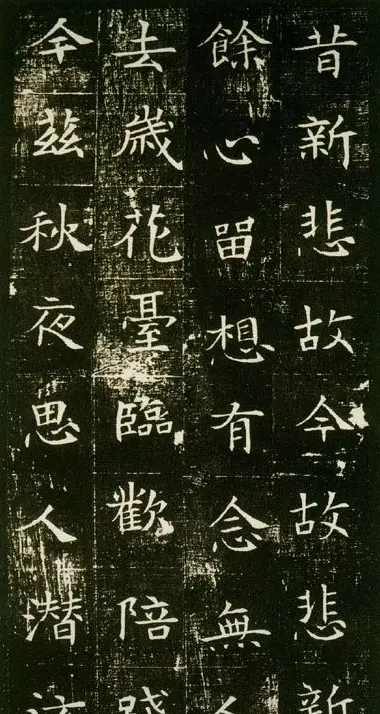 昔新悲故今故悲新
餘心留想有念無人
去歲花臺臨歡陪踐
今茲秋夜思人潛